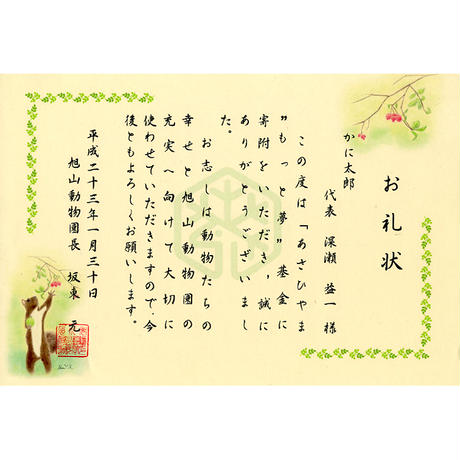 お礼状
かに太郎
代表 深瀬 益一 様
この度は「あさひやま
"もっと夢"基金に
寄附をいただき、誠に
ありがとうございまし
た。
お志しは動物たちの
幸せと旭山動物園の
充実へ向けて大切に
使わせていただきますので、今
後ともよろしくお願いします。
平成二十三年一月三十日
旭山動物園長 坂東 元